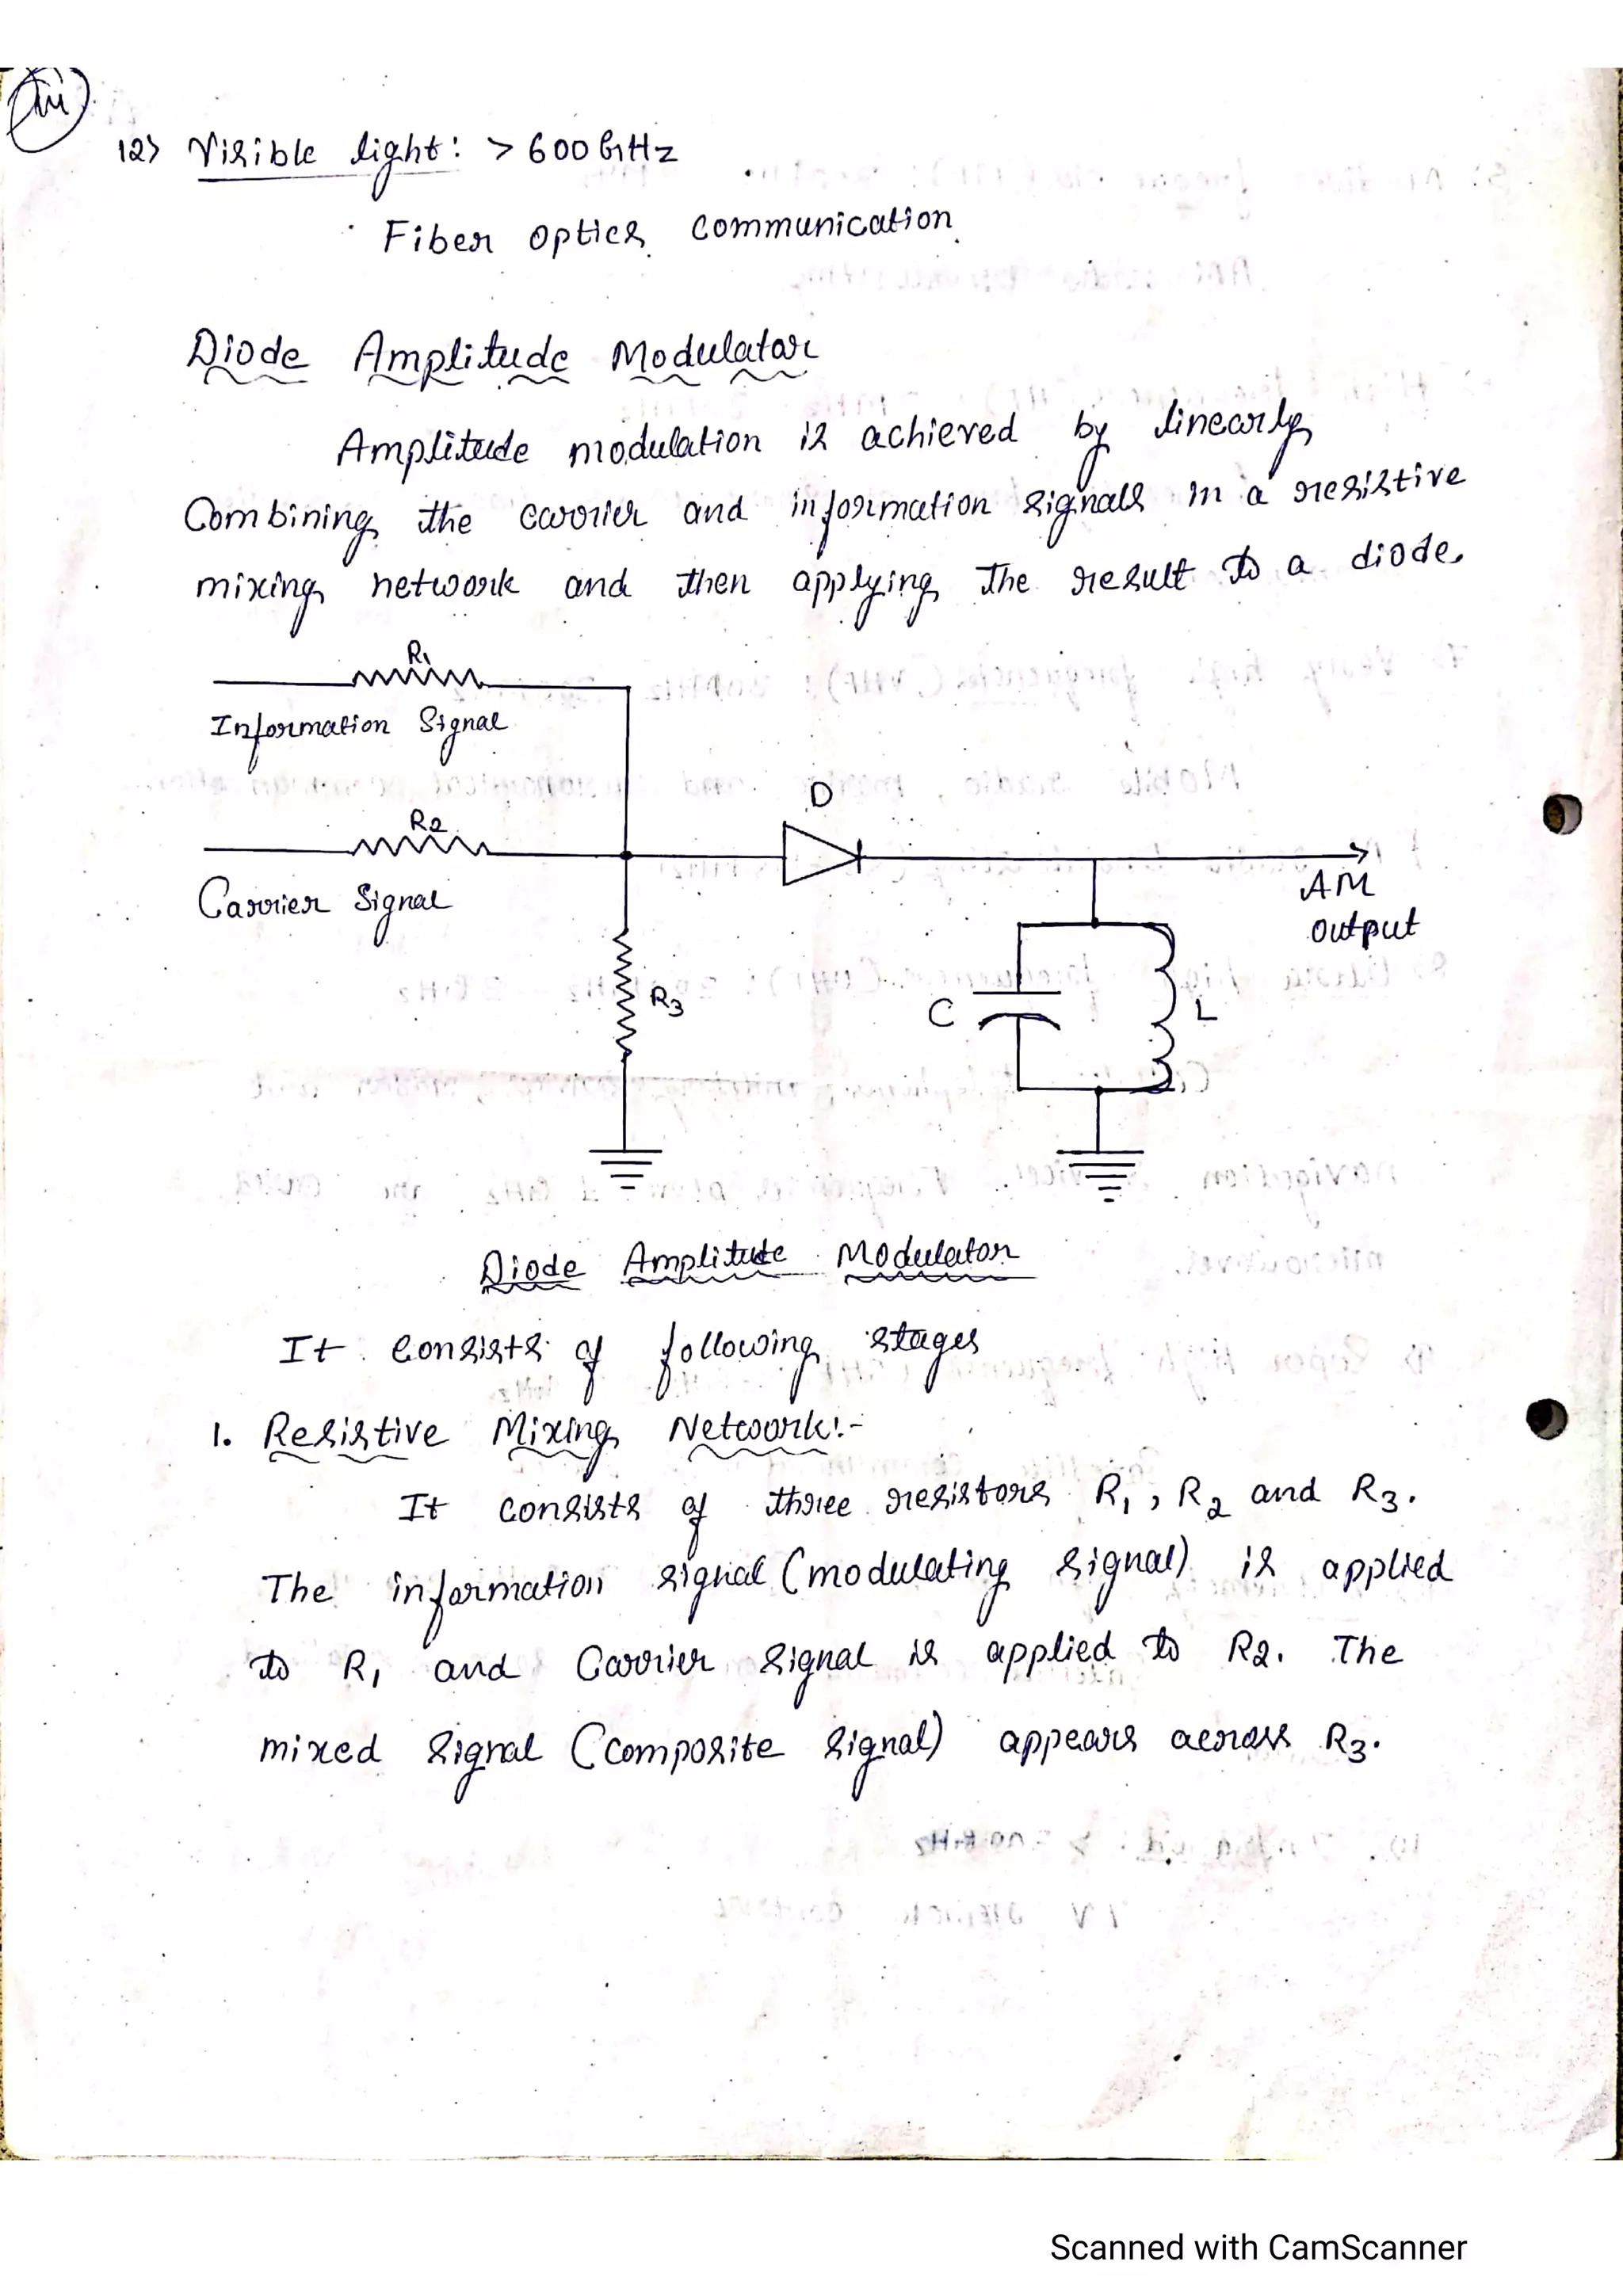 iii
12) Visible light: > 600 GHz
Fiber optics communication.
Diode Amplitude Modulator
Amplitude modulation is achieved by linearly
Combining the carrier and information signals in a resistive
mixing network and then applying the result to a diode.
R1
Information Signal
R2
Carrier Signal
D
AM
output
R3
C
L
Diode Amplitude Modulator
It consists of following stages
1. Resistive Mixing Network:-
It consists of three resistors R1, R2 and R3.
The information signal (modulating signal) is applied
to R1 and Carrier signal is applied to R2. The
mixed signal (composite signal) appears across R3.
Scanned with CamScanner